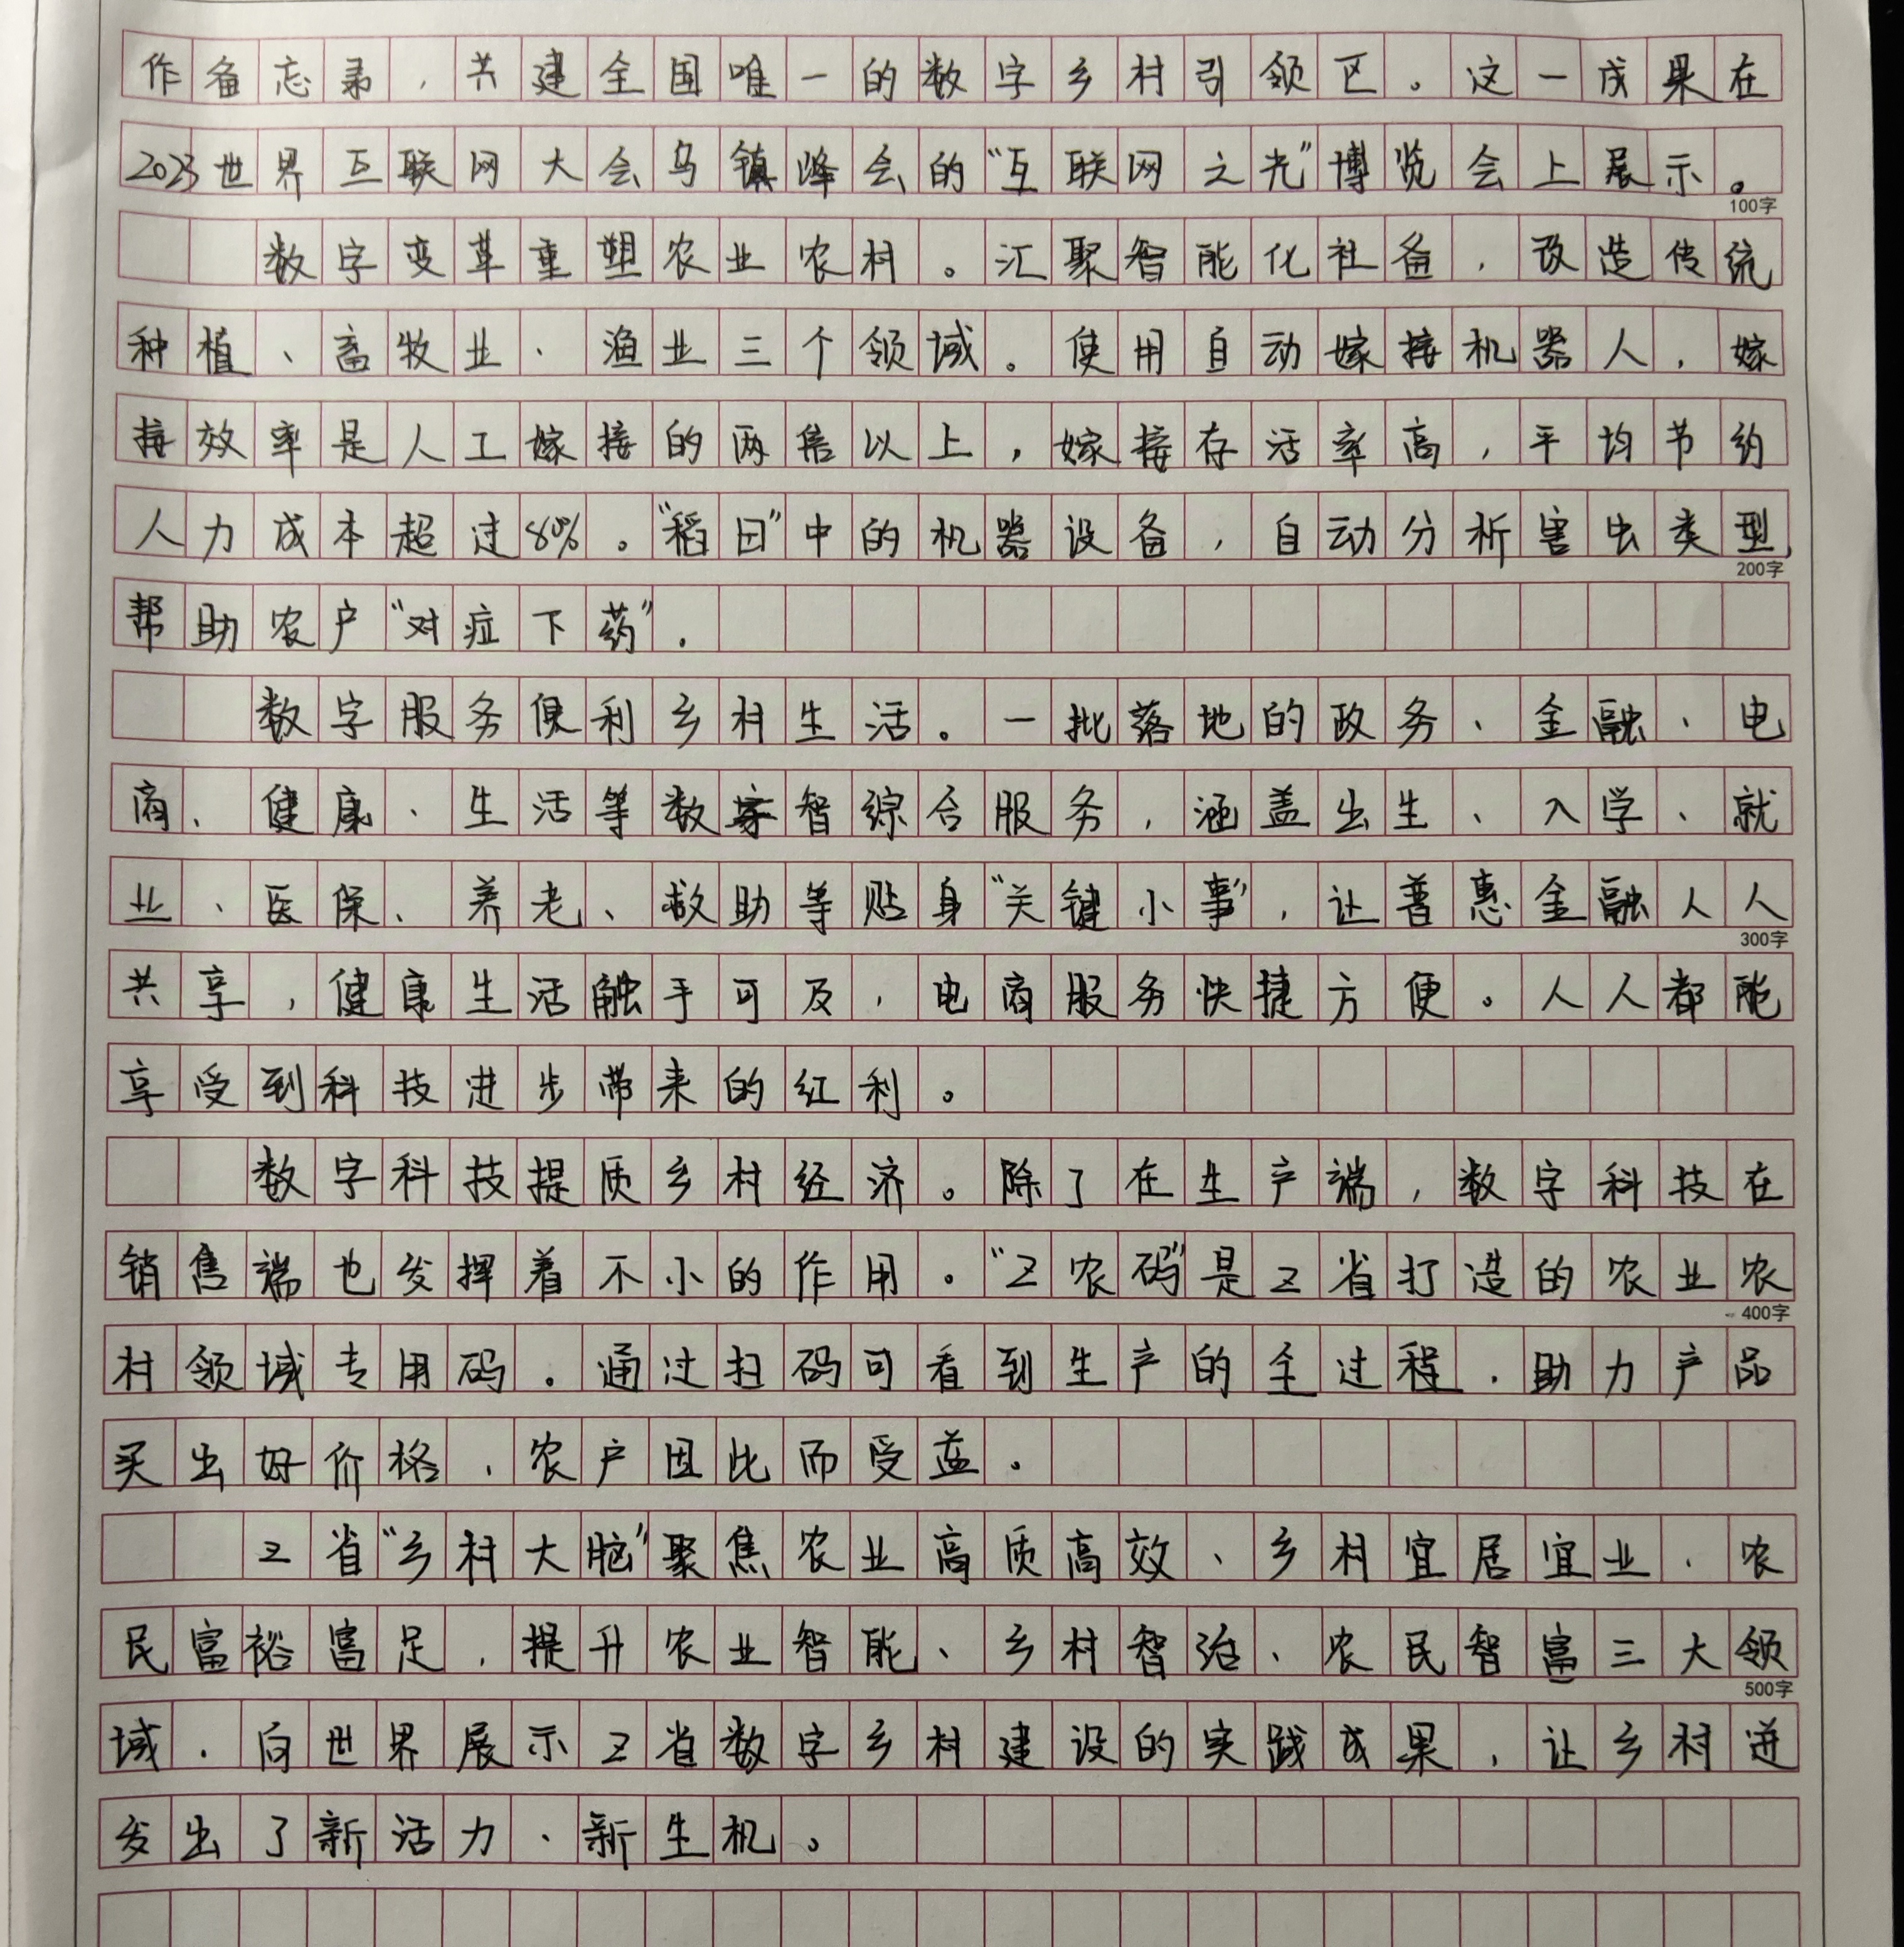 作备忘录，共建全国唯一的数字乡村引领区。这一成果在
2023世界互联网大会乌镇峰会的“互联网之光”博览会上展示。
100字
数字变革重塑农业农村。汇聚智能化社备，改造传统
种植、畜牧业、渔业三个领域。使用自动嫁接机器人，嫁
接效率是人工嫁接的两倍以上，嫁接存活率高，平均节约
人力成本超过80%。“稻田”中的机器设备，自动分析害虫类型，
200字
帮助农户“对症下药”。
数字服务便利乡村生活。一批落地的政务、金融、电
商、健康、生活等数智综合服务，涵盖出生、入学、就
业、医保、养老、救助等贴身“关键小事”，让普惠金融人人
300字
共享，健康生活触手可及，电商服务快捷方便。人人都能
享受到科技进步带来的红利。
数字科技提质乡村经济。除了在生产端，数字科技在
销售端也发挥着不小的作用。“Z农码”是Z省打造的农业农
400字
村领域专用码。通过扫码可看到生产的全过程，助力产品
买出好价格，农户因此而受益。
Z省“乡村大脑”聚焦农业高质高效、乡村宜居宜业、农
民富裕富足，提升农业智能、乡村智治、农民智富三大领
500字
域，向世界展示Z省数字乡村建设的实践成果，让乡村迸
发出了新活力、新生机。